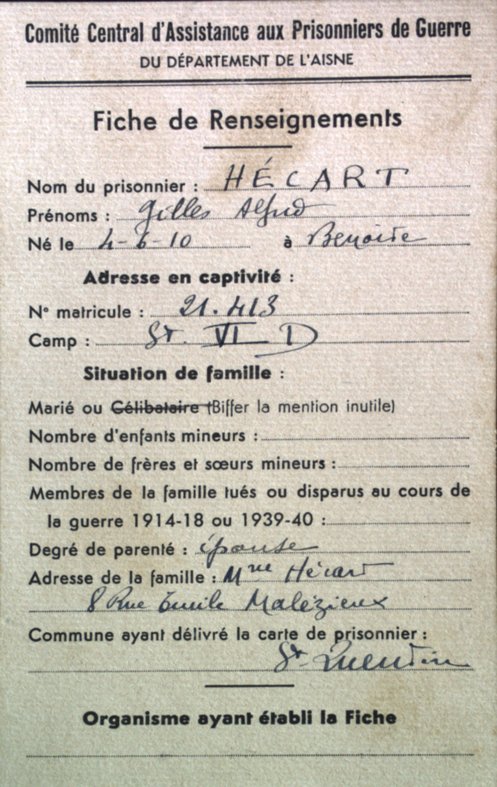 Comité Central d'Assistance aux Prisonniers de Guerre
DU DÉPARTEMENT DE L'AISNE
Fiche de Renseignements
Nom du prisonnier : HÉCART
Prénoms : Gilles Alfred
Né le 4-6-10 à
Adresse en captivité :
N° matricule : 21.413
Camp : St. VI D
Situation de famille :
Marié ou Célibataire (Biffer la mention inutile)
Nombre d'enfants mineurs :
Nombre de frères et sœurs mineurs :
Membres de la famille tués ou disparus au cours de
la guerre 1914-18 ou 1939-40 :
Degré de parenté : épouse
Adresse de la famille : Mme Hécart
8 Rue Emile Malézieux
Commune ayant délivré la carte de prisonnier :
St-Quentin
Organisme ayant établi la Fiche